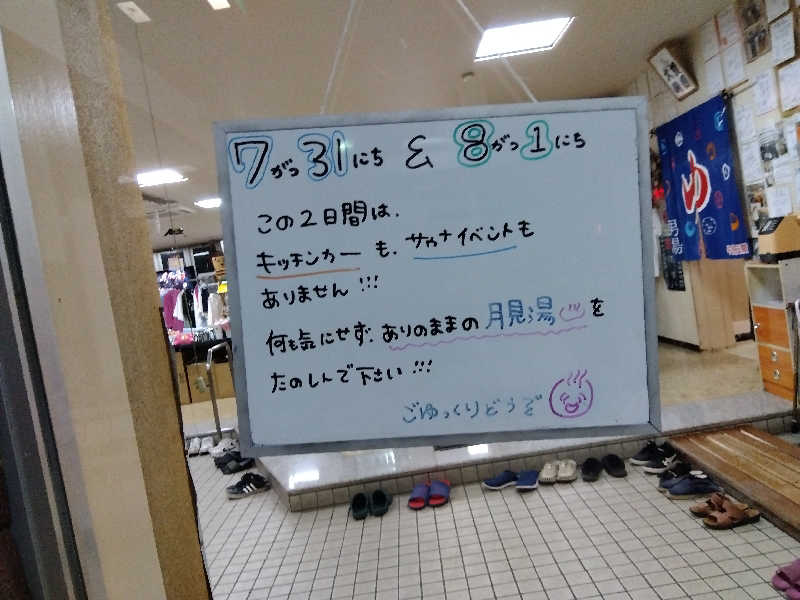 7がつ31にち & 8がつ1にち
この2日間は、
キッチンカーも、サウナイベントも
ありません!!!
何も気にせず、ありのままの月見湯を
たのしんで下さい!!!
ごゆっくりどうぞ
ゆ
男湯